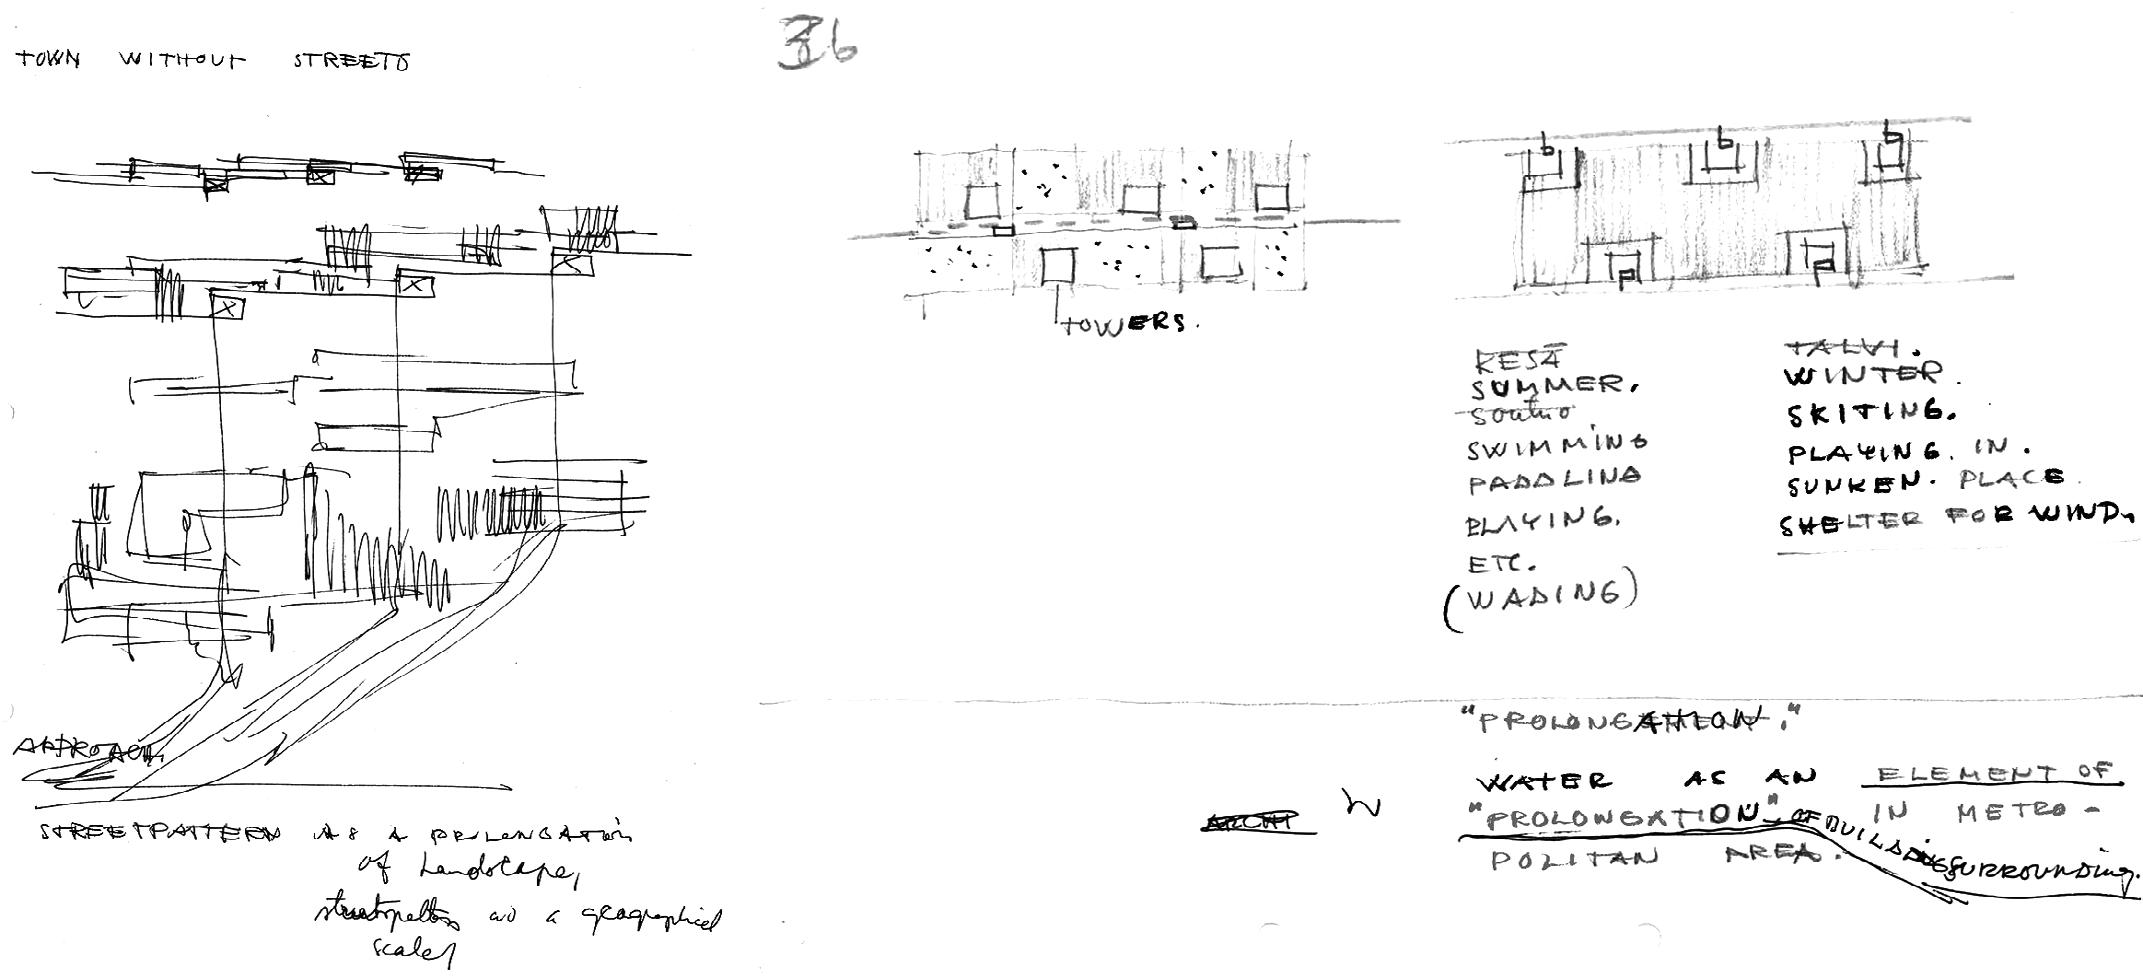 TOWN WITHOUT STREETS
36
TOWERS.
KESÄ
SUMMER.
SWIMMING
PADDLING
PLAYING.
ETC.
(WADING)
TALVI.
WINTER.
SKITING.
PLAYING. IN.
SUNKEN. PLACE.
SHELTER FOR WIND.
APPROACH.
STREETPATTERN AS A PROLONGATION
of Landscape,
streetpattern as a geographical
scale,
"PROLONGATION."
WATER AS AN ELEMENT OF
"PROLONGATION" OF BUILDINGS SURROUNDING. IN METRO-
POLITAN AREA.
ARCHI